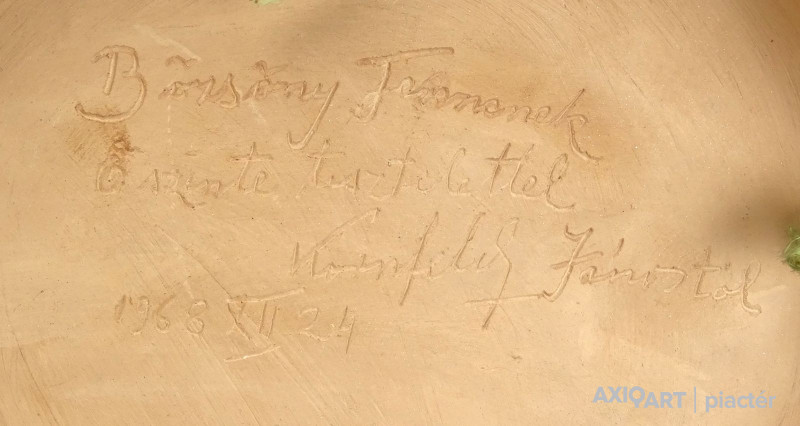 Börzsöny Ferencnek
Őszinte tisztelettel
Kornfeld Jánostól
1968 XII 24
AXIOART | piactér